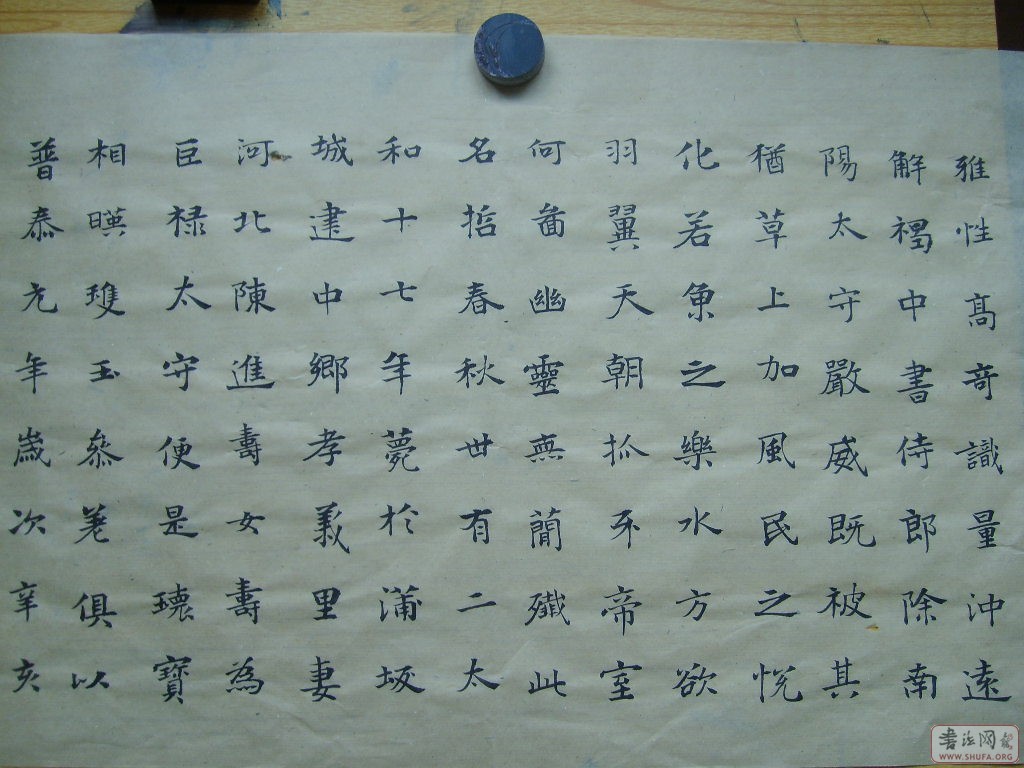 雅性髙奇識量沖遠
解褐中書侍郎除南
陽太守嚴威既被其
猶草上加風民之悅
化若魚之樂水方欲
羽翼天朝抓牙帝室
何啚幽靈無簡殲此
名哲春秋世有二太
和十七年薨於蒲坂
城建中鄉孝義里妻
河北陳進壽女壽為
巨禄太守便是瓌寶
相暎瓊玉參差俱以
普泰元年歲次辛亥
书法网
WWW.SHUFA.ORG